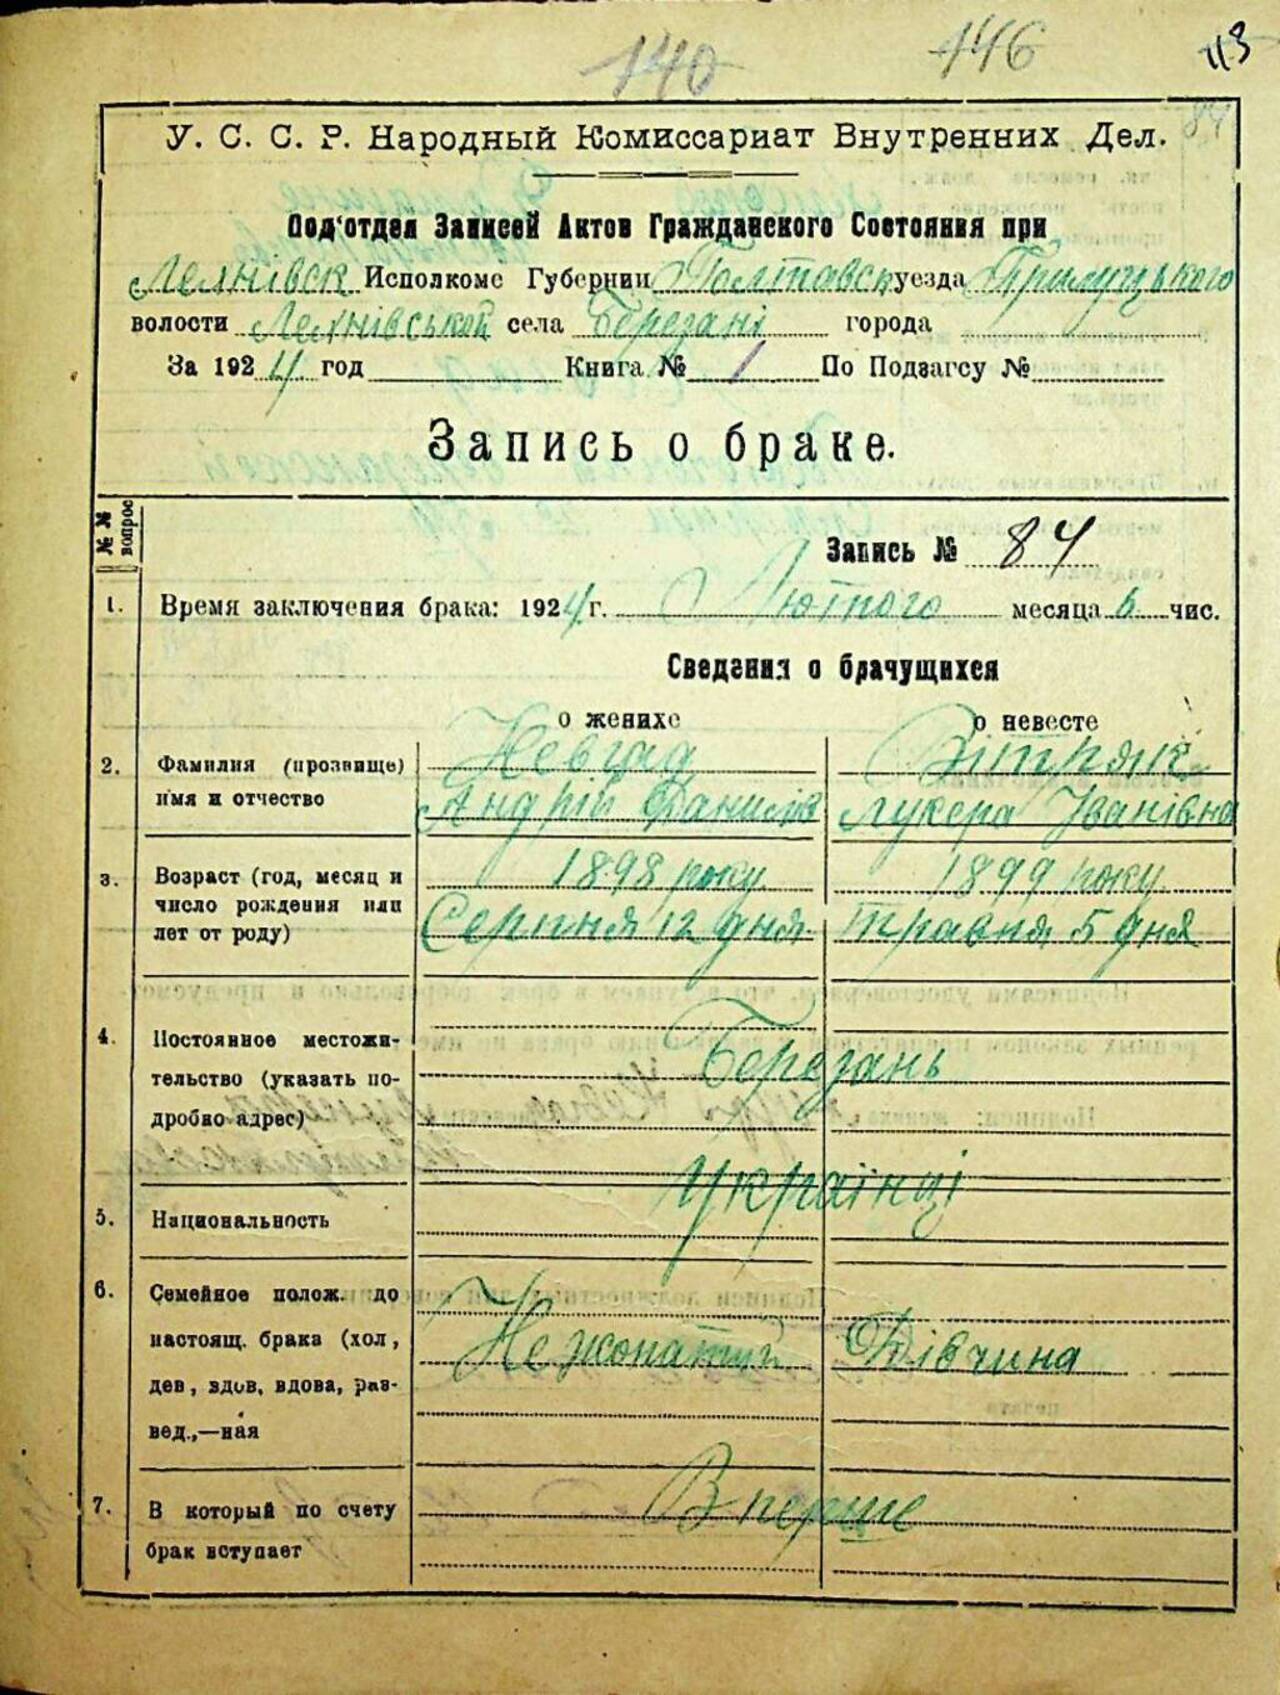 140 146 113
84
У. С. С. Р. Народный Комиссариат Внутренних Дел.
Под'отдел Записей Актов Гражданского Состояния при
Лелнівск Исполкоме Губернии Полтавск уезда Прилуцького
волости Лелнівської села Березані города
За 1924 год Книга № 1 По Подзагсу №
Запись о браке.
№ № вопрос
Запись № 84
1. Время заключения брака: 1924 г. Лютого месяца 6 чис.
Сведения о брачущихся
о женихе о невесте
2. Фамилия (прозвище) Невгад Вітряк
имя и отчество Андрій Данилів Лукера Іванівна
3. Возраст (год, месяц и 1898 року 1899 року
число рождения или Серпня 12 дня Травня 5 дня
лет от роду)
4. Постоянное местожи- Березань
тельство (указать по-
дробно адрес)
Українці
5. Национальность
6. Семейное полож. до
настоящ. брака (хол, Нежонатий Дівчина
дев, вдов, вдова, раз-
вед.,—ная
7. В который по счету Вперше
брак вступает